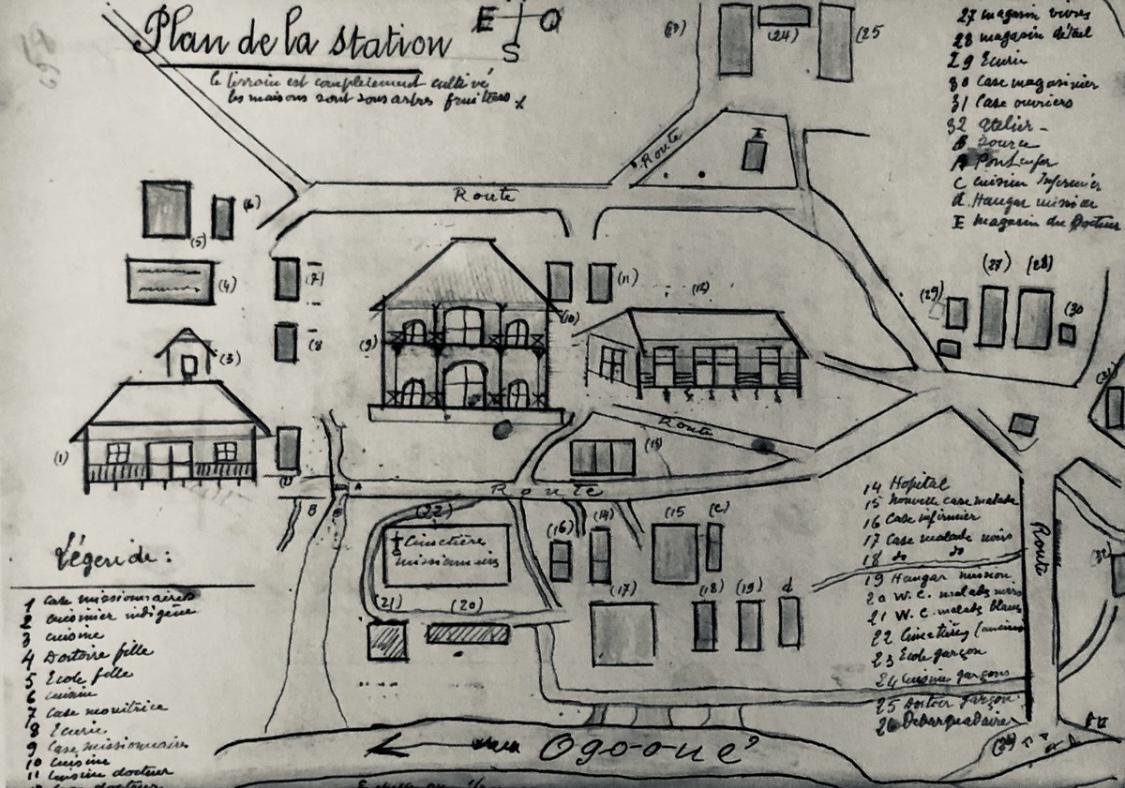 Plan de la station
E O
S
le terrain est complètement cultivé
les maisons sont sous arbres fruitiers
27 magasin vivres
28 magasin détail
29 Ecurie
30 Case magasinier
31 Case ouvriers
32 Atelier
B Source
A Pont
C Cuisine Infirmier
d Hangar
E magasin du Docteur
(24) (25
Route
E
Route
(6)
(5)
(4)
(7)
(8
(3)
(9)
(10)
(11)
(27) (28)
(29)
(30
(1)
Route
(13)
Route
A
B
(22)
Cimetière
missionnaires
(16) (14) (15 (C)
(17) (18) (19) d
(21) (20)
Route
14 Hopital
15 Nouvelle case malade
16 Case infirmier
17 Case malade noirs
18 do do
19 Hangar mission
20 W.C. malads noirs
21 W.C. malads blancs
22 Cimetières
23 Ecole garçon
24 Cuisine garçons
25 Dortoir garçon
26 Debarquadaire
Légende :
1 Case missionnaires
2 cuisinier indigène
3 cuisine
4 Dortoire fille
5 Ecole fille
6 cuisine
7 Case monitrice
8 Ecurie
9 Case missionnaire
10 Cuisine
11 Cuisine docteur
Ogooué